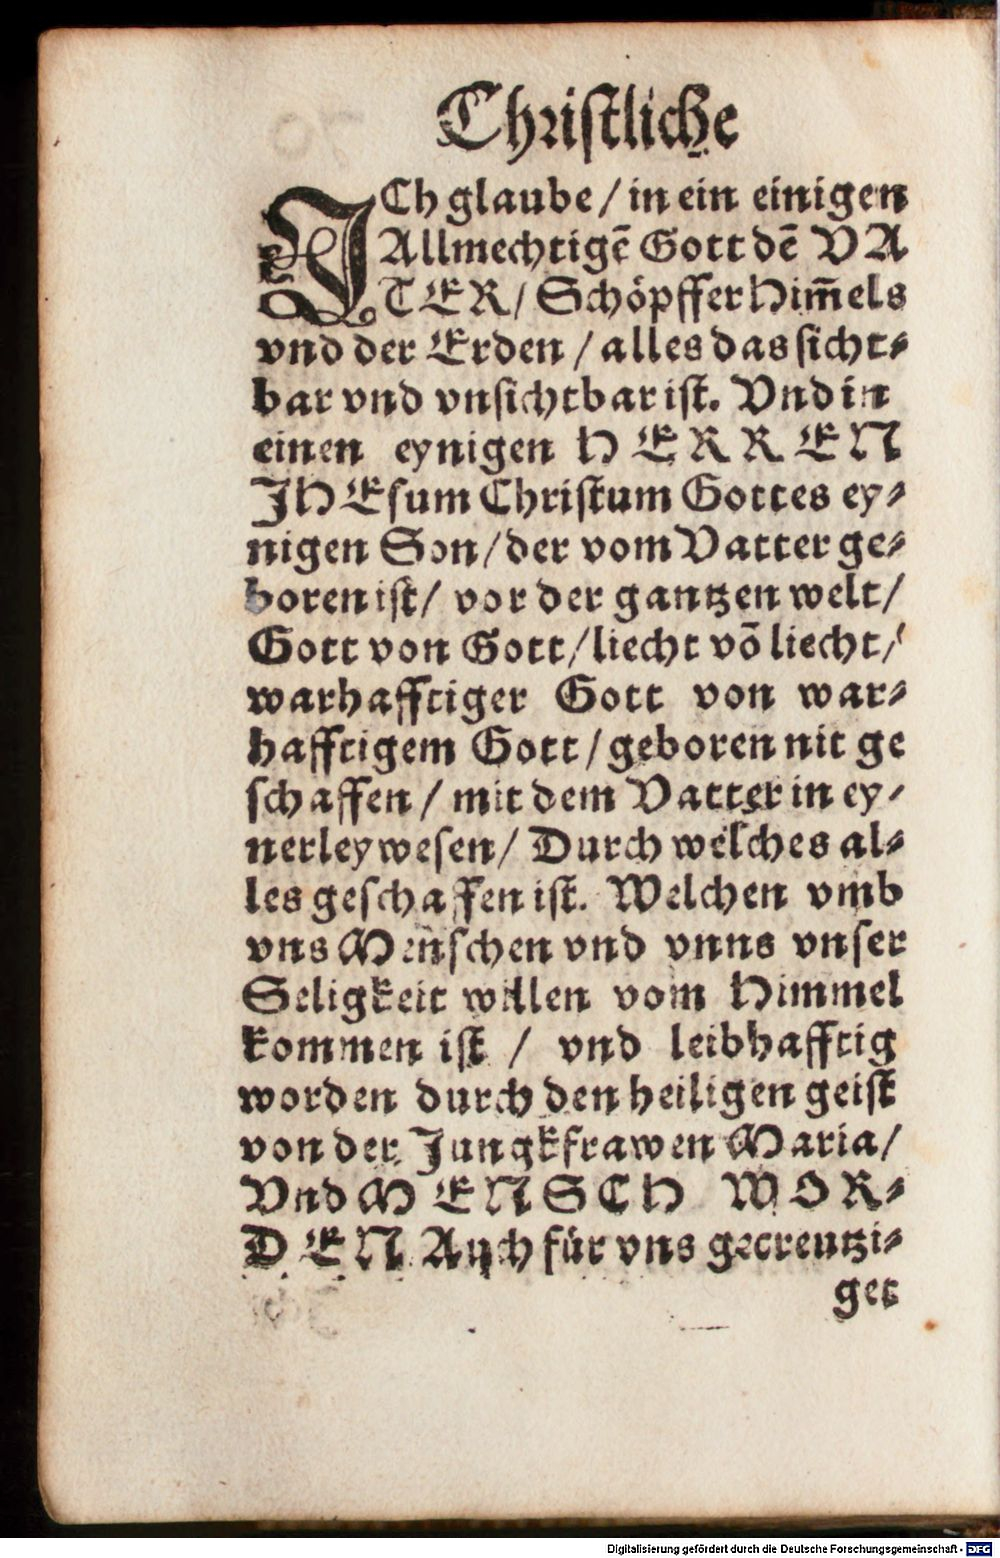 Christliche
ICh glaube / in ein einigen
Allmechtigē Gott dē VA
TER / Schöpffer Him̄els
vnd der Erden / alles das sicht⸗
bar vnd vnsichtbar ist. Vnd in
einen eynigen HERREN
JHEsum Christum Gottes ey⸗
nigen Son / der vom Vatter ge⸗
boren ist / vor der gantzen welt /
Gott von Gott / liecht vō liecht /
warhafftiger Gott von war⸗
hafftigem Gott / geboren nit ge
schaffen / mit dem Vatter in ey⸗
nerley wesen / Durch welches al⸗
les geschaffen ist. Welchen vmb
vns Menschen vnd vnns vnser
Seligkeit willen vom Himmel
kommen ist / vnd leibhafftig
worden durch den heiligen geist
von der Jungkfrawen Maria /
Vnd MENSCH WOR⸗
DEN Auch für vns gecreutzi⸗
get
Digitalisierung gefördert durch die Deutsche Forschungsgemeinschaft - DFG